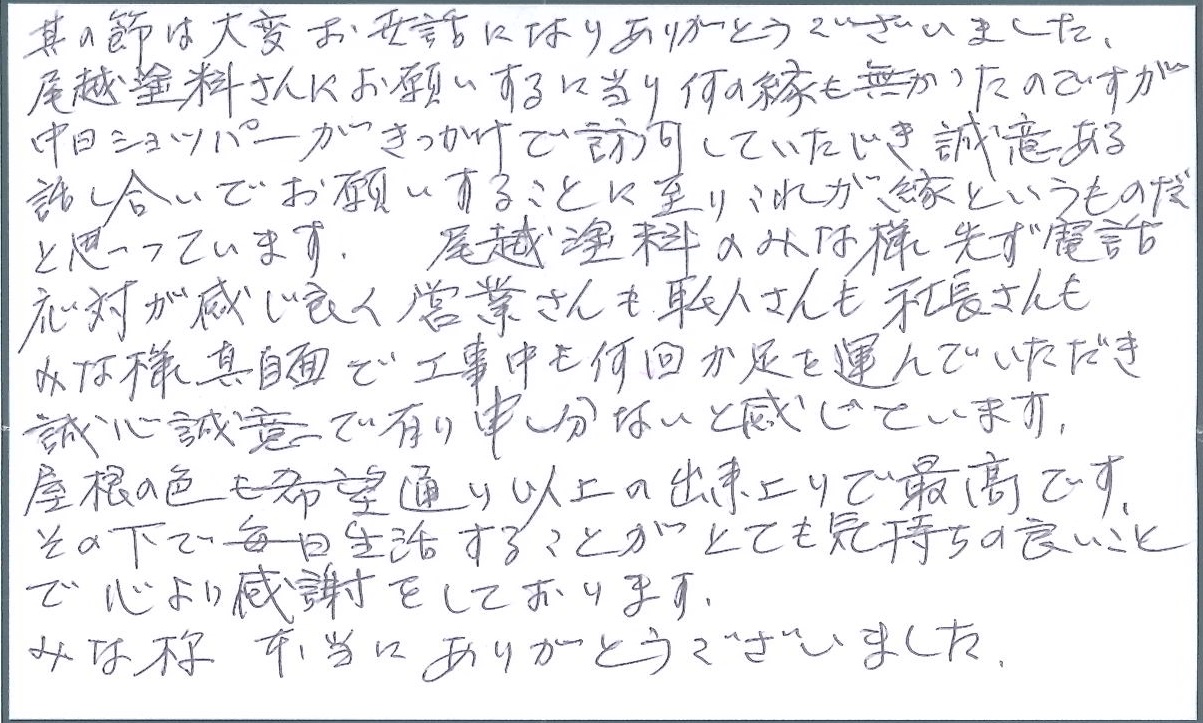 其の節は大変お世話になりありがとうございました。
尾越塗料さんにお願いするに当り何の縁も無かったのですが
中日ショッパーがきっかけで訪問していただき誠意ある
話し合いでお願いすることに至りこれが縁というものだ
と思っています。 尾越塗料のみな様 先ず電話
応対が感じ良く営業さんも職人さんも社長さんも
みな様真面目で工事中も何回か足を運んでいただき
誠心誠意で有り申し分ないと感じています。
屋根の色も希望通り以上の出来上りで最高です。
その下で毎日生活することがとても気持ちの良いこと
で心より感謝をしております。
みな様 本当にありがとうございました。